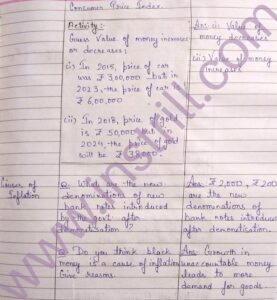 Consumer Price Index.
Activity:-
Guess Value of money increases
or decreases:
(i) In 2015, price of car
was ₹ 3,00,000 but in
2023, the price of car is
₹ 6,00,000
(ii) In 2018, price of gold
is ₹ 50,000 but in
2024, the price of gold
will be ₹ 38,000.
Ans:(i) Value of
money decreases
(ii) Value of money
increases
Causes of
Inflation
Q. What are the new
denominations of new
bank notes introduced
by the govt after
Ans: ₹ 2,000, ₹ 200
are the new
denominations of
bank notes introduced
after
Q. Do you think black
money is a cause of inflation
Give reasons.
Ans: Growth in
unaccountable money
leads to more
demand for goods